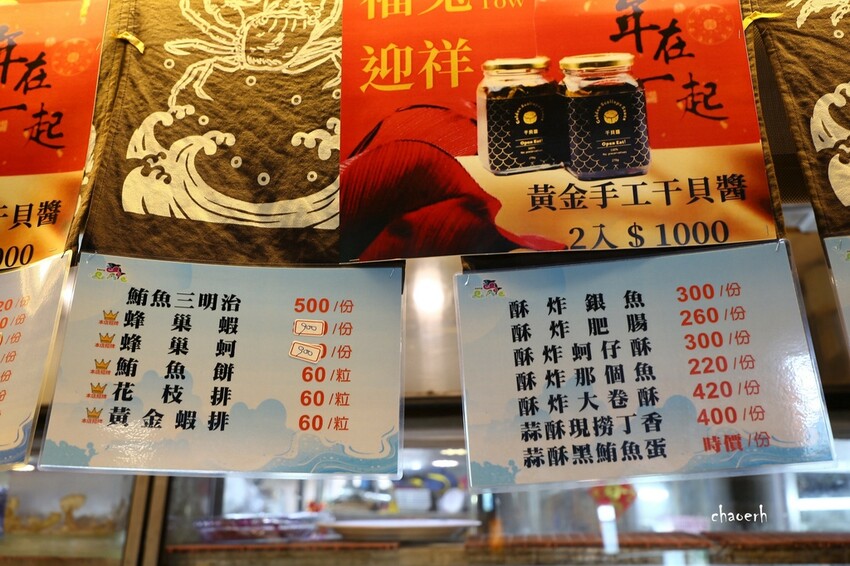 福兔
迎祥
年在
一起
年在
一起
干貝醬
干貝醬
Open Eat!
Open Eat!
黃金手工干貝醬
2入 $ 1000
干貝醬
000
鮪魚三明治 500/份
本店招牌 蜂巢蝦 900/份
本店招牌 蜂巢蚵 900/份
本店招牌 鮪魚餅 60/粒
本店招牌 花枝排 60/粒
本店招牌 黃金蝦排 60/粒
酥炸銀魚 300/份
酥炸肥腸 260/份
酥炸蚵仔酥 300/份
酥炸那個魚 220/份
酥炸大卷酥 420/份
蒜酥現撈丁香 400/份
蒜酥黑鮪魚蛋 時價/份
chaoerh